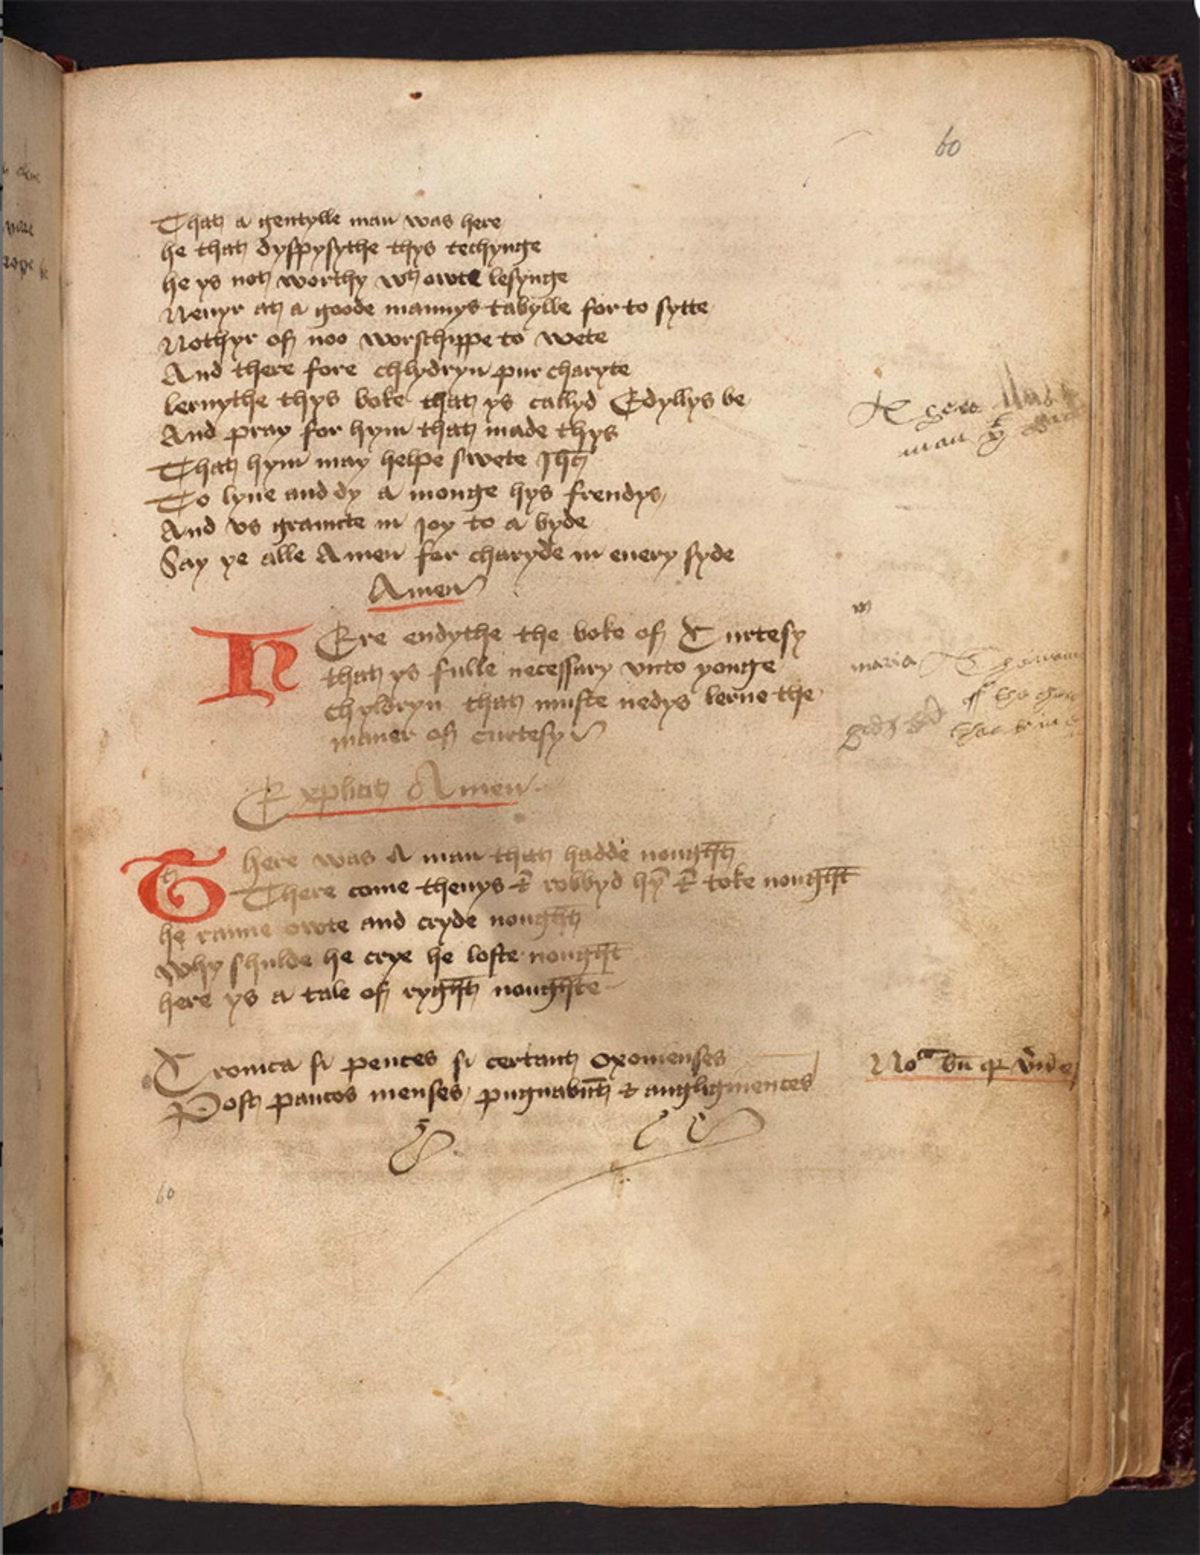 60
That a gentylle man was here
he that dyspysythe thys techynge
he ys not worthy wt owte lesynge
Neuyr at a goode mannys tabylle for to sytte
Nothyr of noo worschippe to wete
And there fore chlydryn pur charyte
lernythe thys boke that ys callyd Edyllys be
And pray for hym that made thys
That hym may helpe swete Ihc
To lyue and dy a monge hys frendys
And vs graunte in Joy to a byde
Say ye alle Amen for charyde in euery syde
Amen
HEre endythe the boke of Curtesy
that ys fulle necessary vnto yonge
chyldryn that muste nedys lerne the
maner of curtesy
Explicit Amen
There was A man that hadde nought
There come theuys & robbyd hym & toke nought
he ranne owte and cryde nought
why shulde he crye he loste nought
here ys a tale of ryght noughte
Cronica si pentes si certant oxonienses
Post paucos menses pugnabunt & angliginences
maria
60